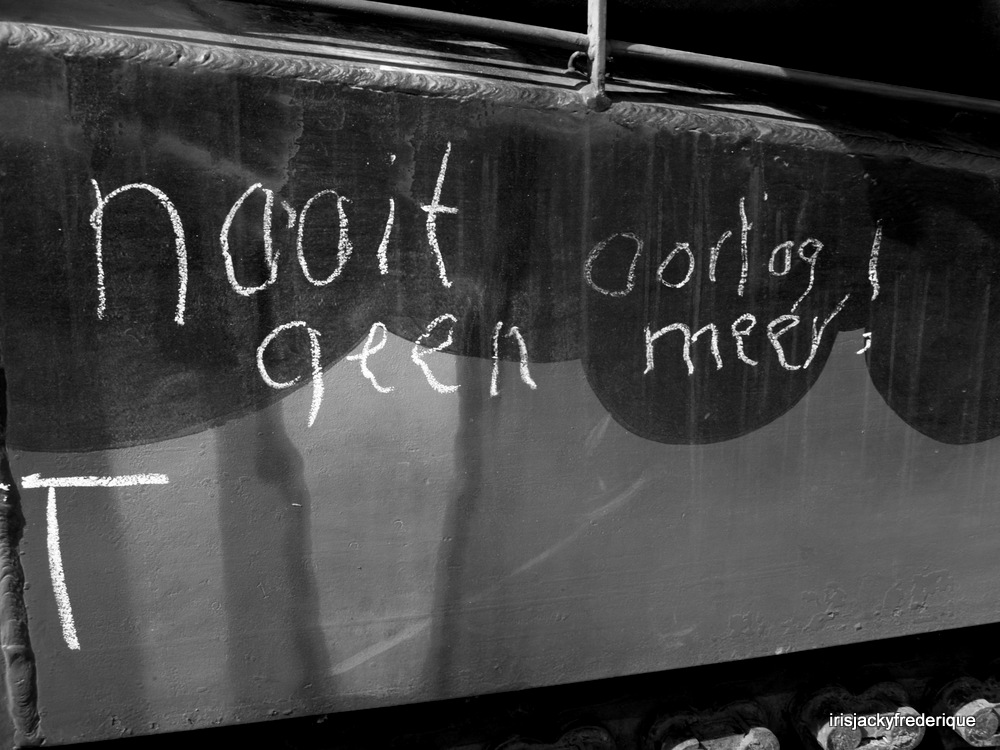 nooit oorlog!
geen meer
T
irisjackyfrederique